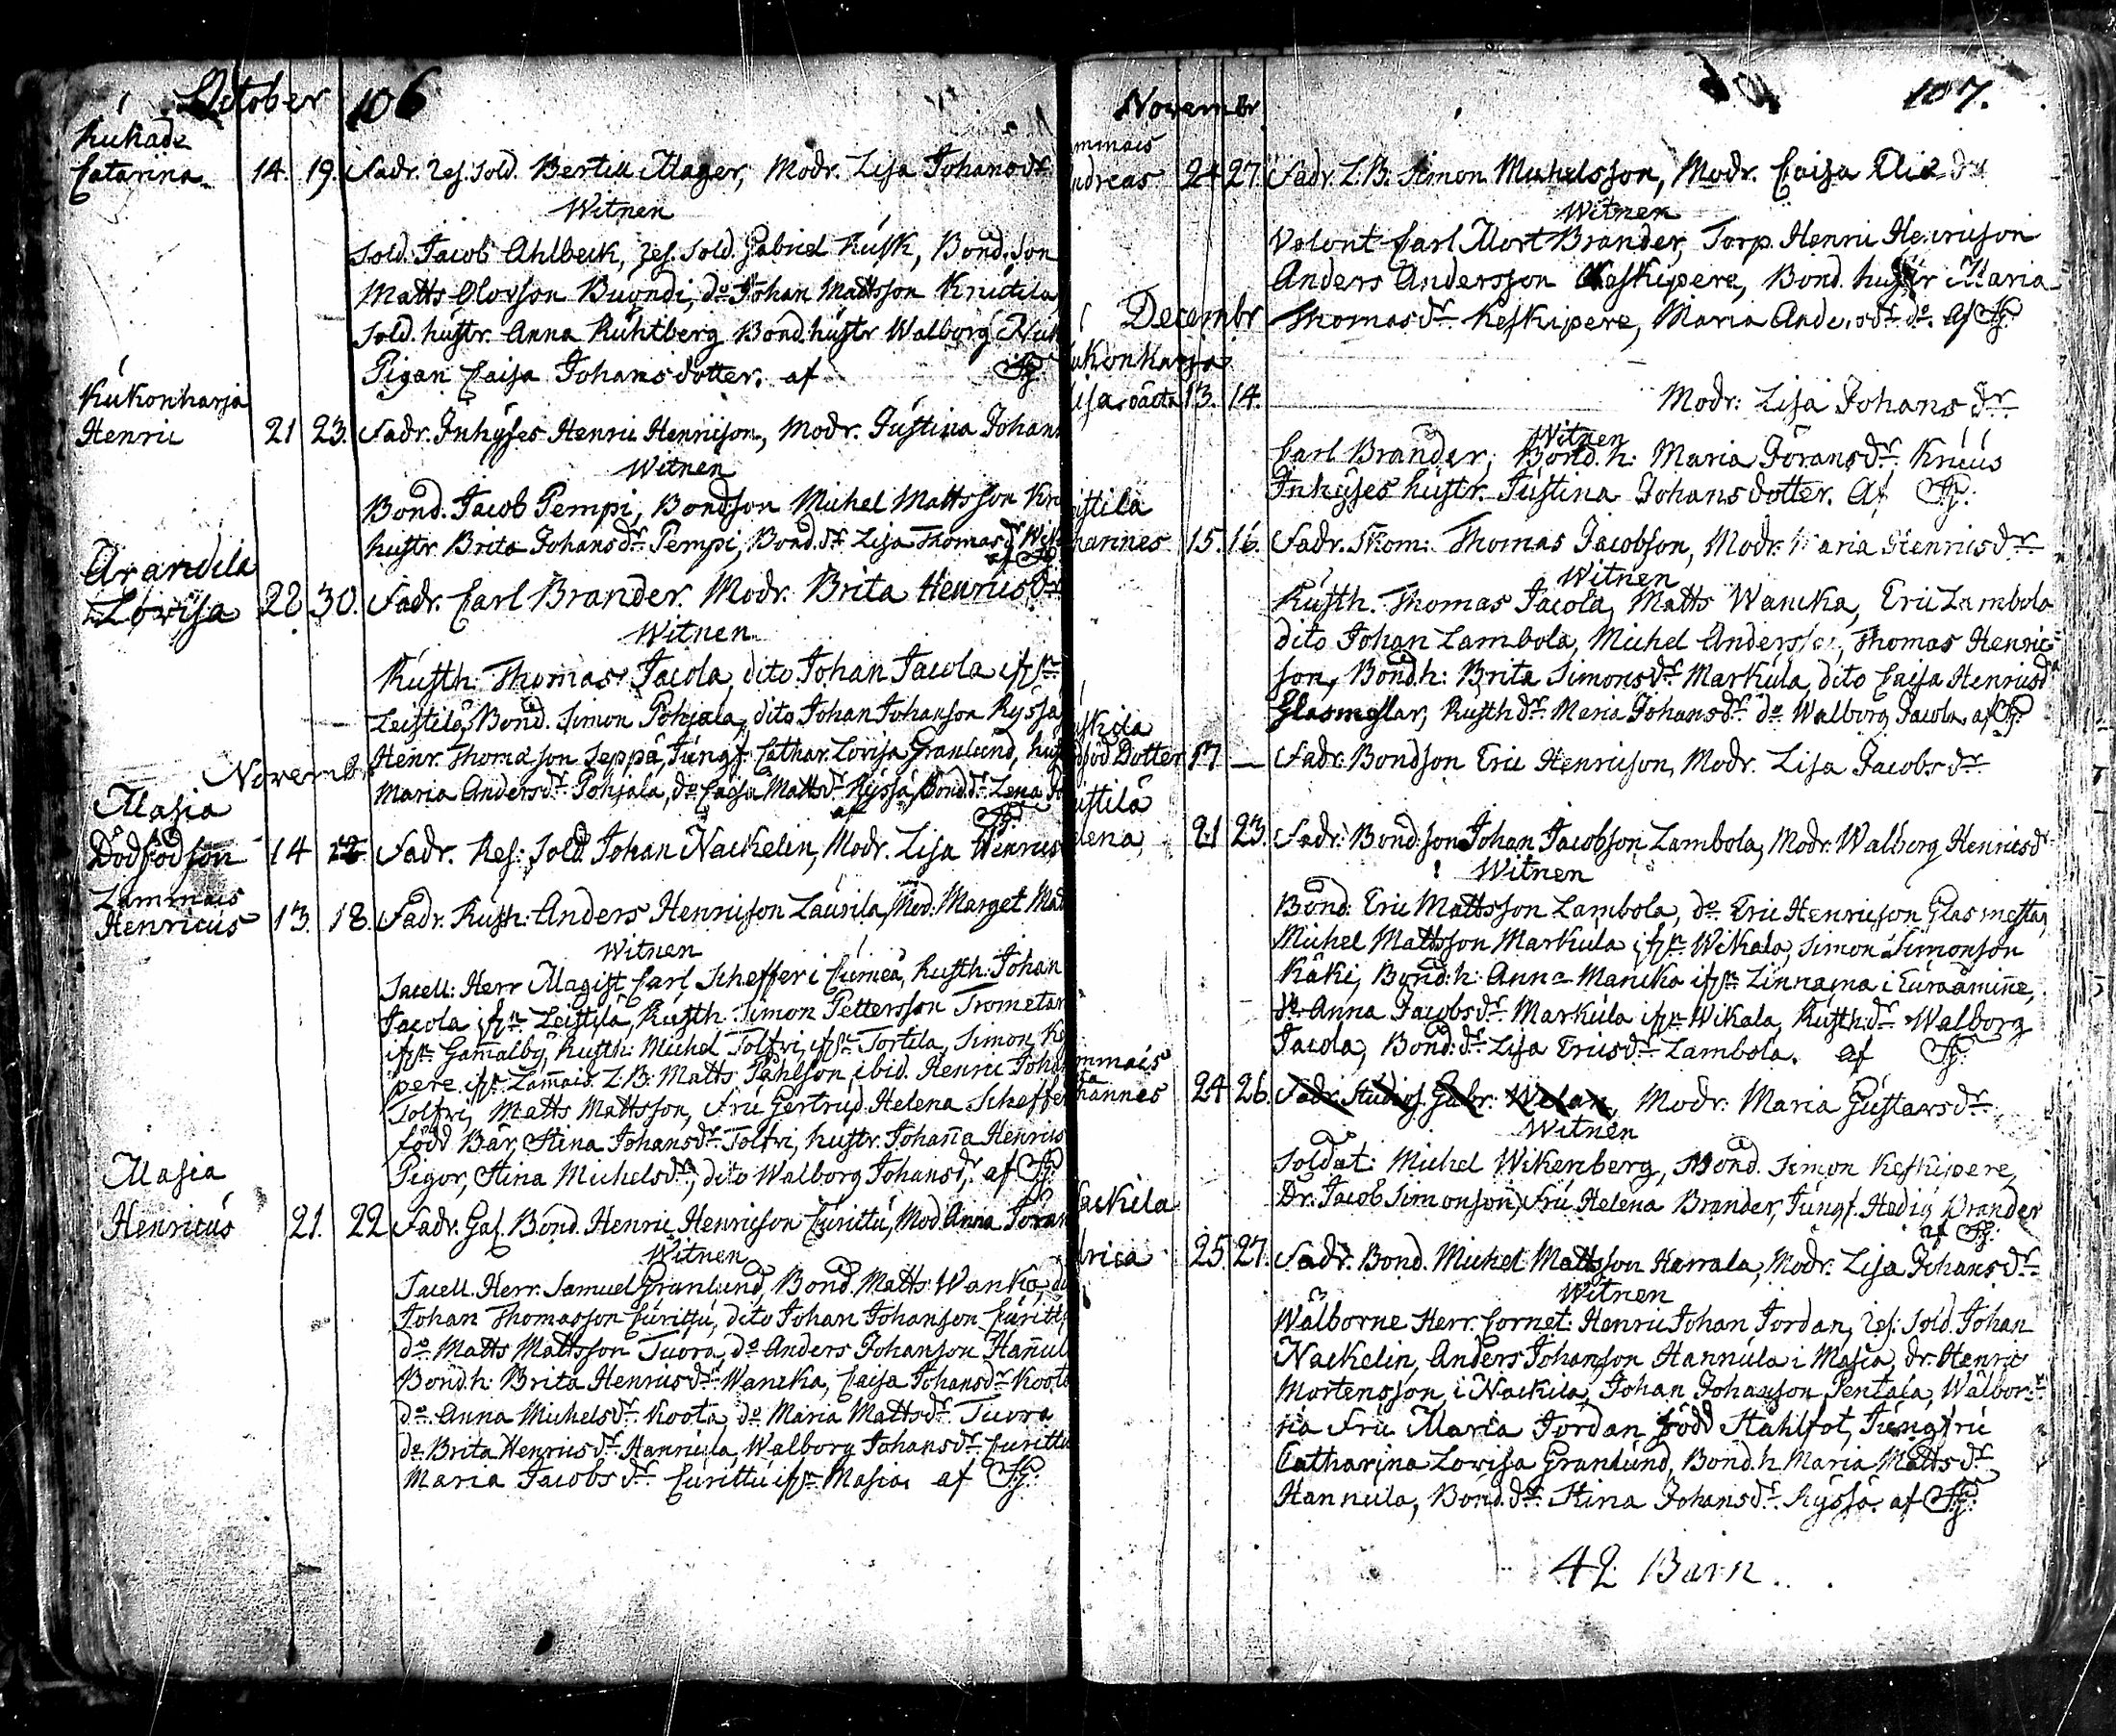 October 106
Kukade
Catarina 14. 19. Fadr. res. Sold. Bertill Mager, Modr. Lisa Johansdr
Witnen
Sold. Jacob Ahlbeck, res. Sold. Gabriel Rusk, Bond. Son
Matts Olovson Buondi, do Johan Mattsson Knutila
Sold. hustr. Anna Ruhtberg Bond. hustr Walborg
Pigan Caisa Johansdotter. af
Kukonharja
Henric 21 23. Fadr. Inhyses Henric Henricson, Modr. Justina Johan
Witnen
Bond. Jacob Pempi, Bondson Michel Mattsson
hustr Brita Johansdr Pempi, Bond. dr Lisa Thomasdr
Arandila
Lovisa 22 30. Fadr. Carl Brander. Modr. Brita Henricsdr
Witnen
Rusth. Thomas Jacola, dito Johan Jacola ifrn
Leistilä, Bond. Simon Pohjala, dito Johan Johanson Kyssä
Henr. Thomasson Seppä, Jungf. Cathar. Lovisa Granlund,
Maria Andersdr Pohjala, do Caisa Mattsdr Kyssä, Bond. dr Lena
af
Novembr
Masia
Dödfödson 14 Fadr. Res: Sold Johan Nackelin, Modr. Lisa Henrics
Lammais
Henricus 13. 18. Fadr. Rusth: Anders Henricson Lausila, Mod: Marget
Witnen
Sacell: Herr Magist Carl Scheffer i Cumeå, Rusth: Johan
Jacola ifrn Leistilä, Rusth. Simon Pettersson Trometar
ifrn Gammalby, Rusth: Michel Tolfri, ifrn Tortila, Simon
pere ifrn Lammais. L. B: Matts Påhlson, ibid. Henric
Tolfri, Matts Mattsson, Fru Gertrud Helena Scheffer
född Bär, Stina Johansdr Tolfri, hustr. Johanna Henrics
Pigor, Stina Michelsdr, dito Walborg Johansdr, af
Masia
Henricus 21. 22 Fadr. Gal. Bond. Henric Henricson Curittu, Mod. Anna
Witnen
Sacell. Herr. Samuel Granlund, Bond. Matts Wanka,
Johan Thomasson Curittu, dito Johan Johanson
do Matts Mattsson Tuora, do Anders Johanson
Bond.h. Brita Henricsdr Wancka, Caisa Johansdr
do Anna Michelsdr Koota, do Maria Mattsdr Tuora
do Brita Henricsdr Hannula, Walborg Johansdr Curittu
Maria Jacobsdr Curittu ifrn Masia. af
Novembr. 107.
mmais
ndreas 24 27. Fadr. L. B. Simon Michelsson, Modr. Caisa
Witnen
Volont Carl Mort Brander, Torp. Henric Henricson
Anders Andersson Keskipere, Bond. hustr Maria
Thomasdr Keskipere, Maria Andersdr do. af
Decembr
ukonharja
13. 14. Modr: Lisa Johansdr
Witnen
Carl Brander, Bond. h: Maria Joransdr
Inhyses hustr. Justina Johansdotter. af
istila
hannes 15. 16. Fadr. Skom: Thomas Jacobson, Modr. Maria Henricsdr
Witnen
Rusth. Thomas Jacola, Matts Wancka, Eric Lambola
dito Johan Lambola, Michel Andersson, Thomas Henric
son, Bond.h: Brita Simonsdr Markula, dito Caisa Henricsd
Glasmestar, Rusth dr. Maria Johansdr do Walborg Jacola af
skila
död Dotter 17 — Fadr. Bondson Eric Henricson, Modr. Lisa Jacobsdr
istilä
elena, 21 23. Fadr: Bond. son Johan Jacobson Lambola, Modr. Walborg Henricsdr
Witnen
Bond: Eric Mattsson Lambola, do. Eric Henricson Glasmestar
Michel Mattsson Markula ifrn Wikala, Simon Simonson
Käki, Bond: h: Anna Mancka ifrn Linnama i Euraåminne,
do Anna Jacobsdr. Markula ifrn Wikala, Rusth: dr Walborg
Jacola, Bond: dr Lisa Ericsdr Lambola. af
mmais
hannes 24 26. Modr: Maria Gustavsdr
Witnen
Soldat: Michel Wikenberg, Bond. Simon Keskipere,
Dr. Jacob Simonson, Fru Helena Brander, Jungf. Hedvig Brander
af
ackila
drica 25. 27. Fadr. Bond. Michel Mattsson Harrala, Modr. Lisa Johansdr
Witnen
Wälborne Herr. Cornet: Henric Johan Jordan, res: Sold. Johan
Nackelin, Anders Johanson Hannula i Masia, dr. Henric
Mortensson i Nackila, Johan Johanson Pentala, Wälbor:
na Fru Maria Jordan född Stahlfot, Jungfru
Catharina Lovisa Granlund, Bond.h Maria Mattsdr
Hannula, Bond. dr Stina Johansdr Kyssä. af
42 Barn.